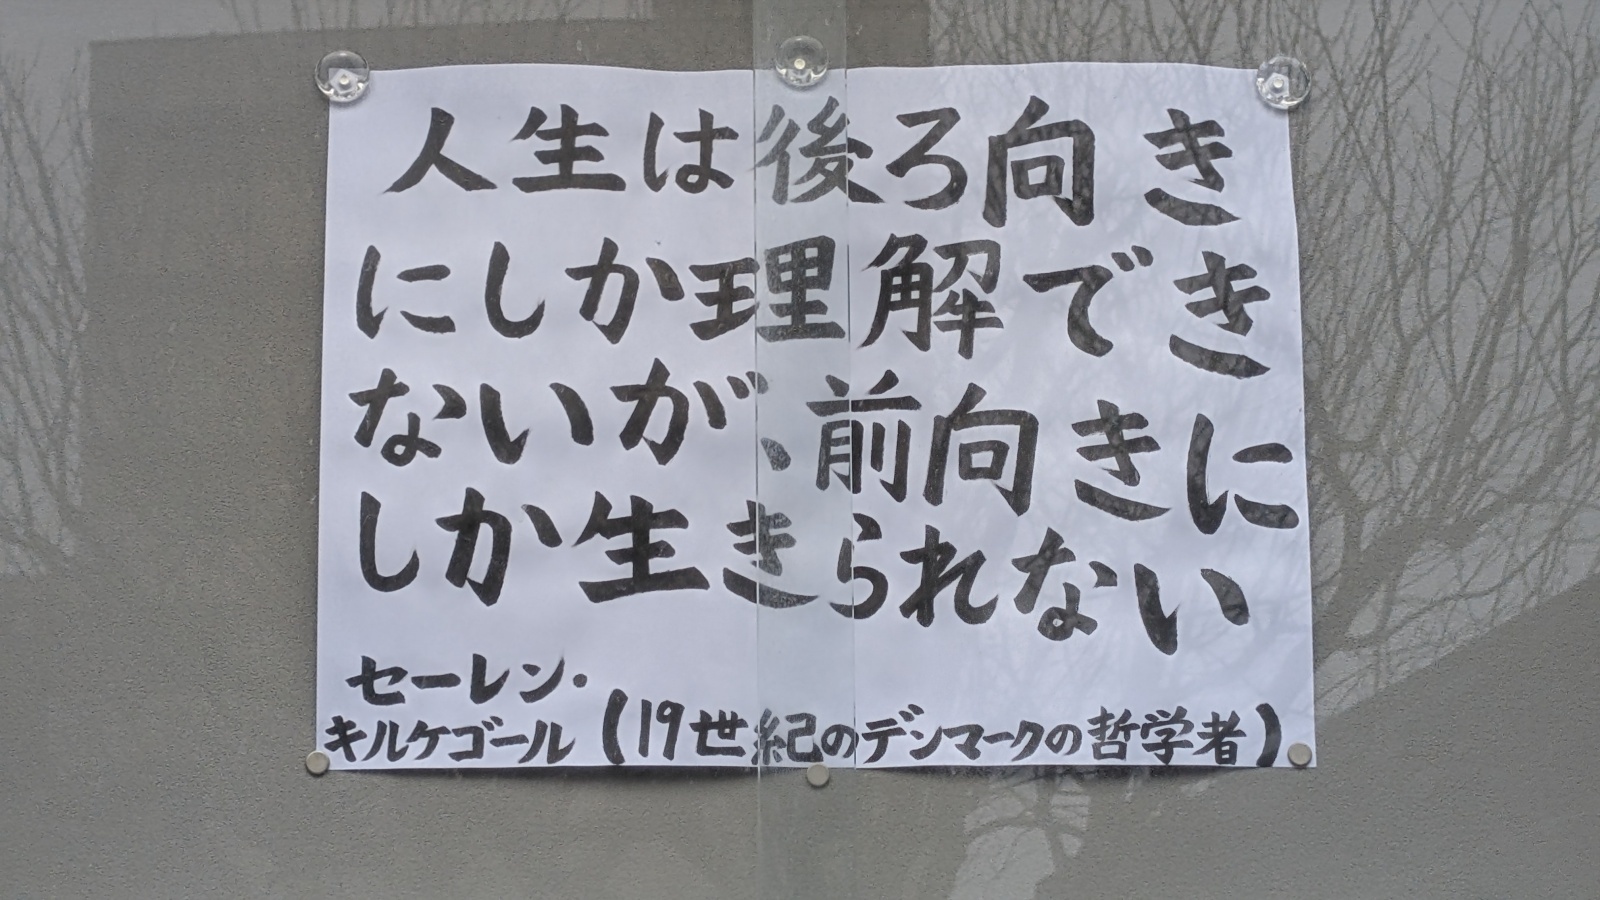 人生は後ろ向き
にしか理解でき
ないが、前向きに
しか生きられない
セーレン・
キルケゴール(19世紀のデンマークの哲学者)